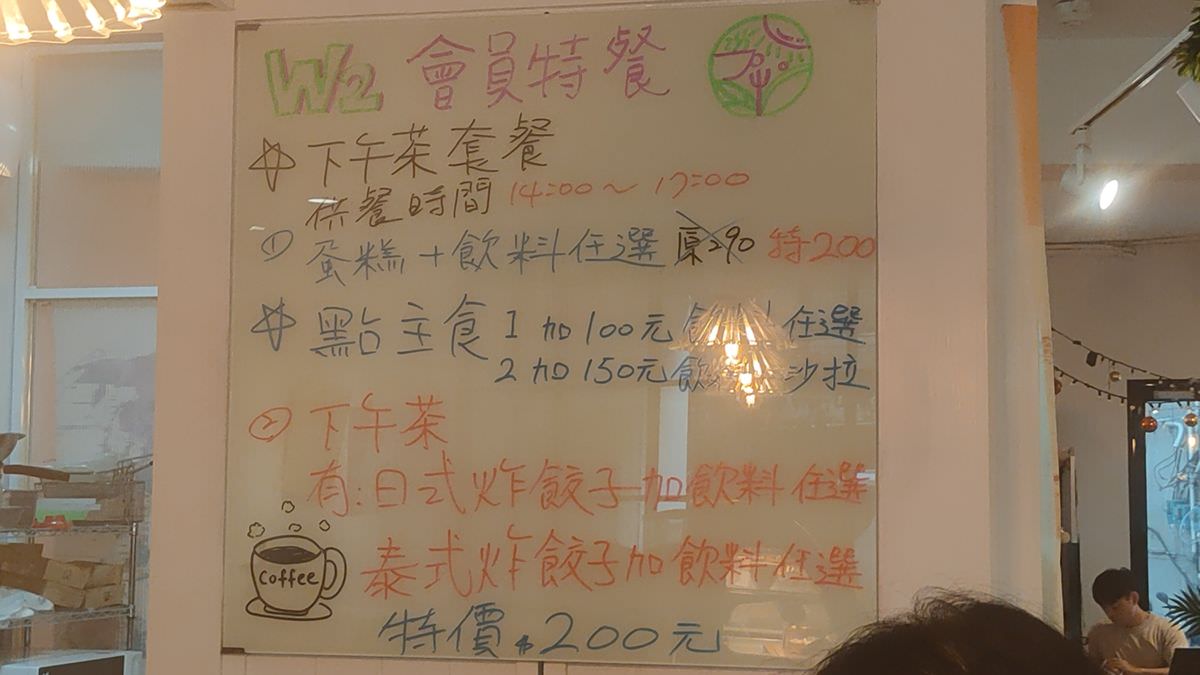 W2 會員特餐
下午茶套餐
供餐時間 14:00～17:00
① 蛋糕+飲料任選 原290 特200
點主食 1 加100元飲料任選
2 加150元飲 沙拉
② 下午茶
有:日式炸餃子加飲料任選
泰式炸餃子加飲料任選
coffee
特價$200元